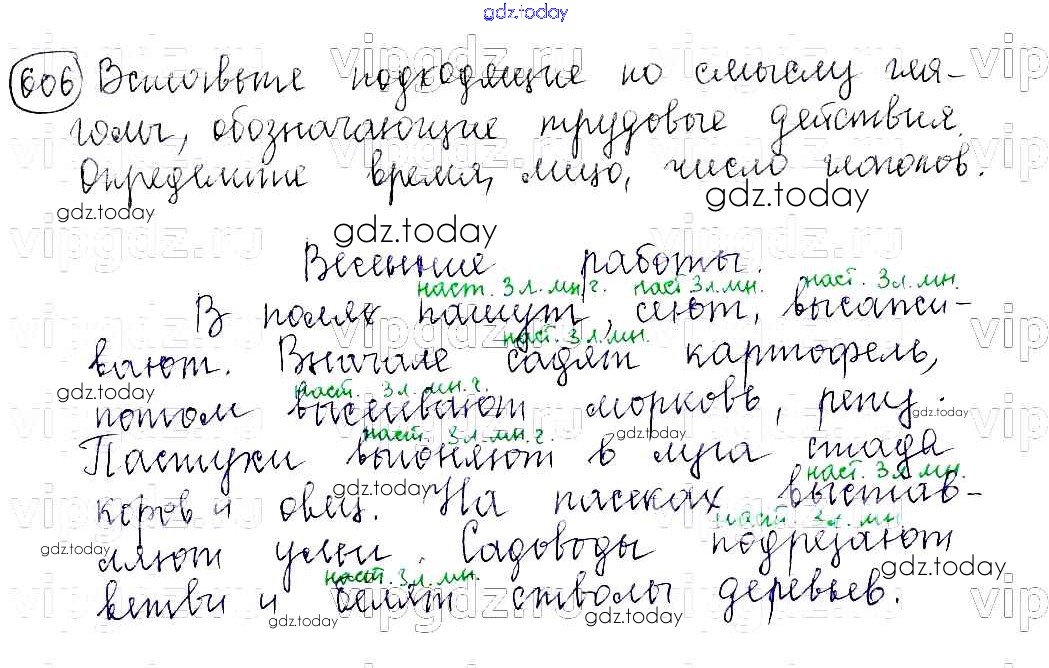 gdz.today
606 Вставьте подходящие по смыслу гла-
голы, обозначающие трудовые действия.
Определите время, лицо, число глаголов.
gdz.today
gdz.today
gdz.today
Весенние работы.
наст. 3 л. мн. г. наст 3 л. мн. наст. 3 л. мн.
В полях пашут, сеют, высажи-
наст. 3 л. мн.
вают. Вначале садят картофель,
gdz.today наст. 3 л. мн. г.
потом высеивают морковь, репу.
gdz.today
наст. 3 л. мн. г. gdz.today
Пастухи выгоняют в луга стада
наст. 3 л. мн.
gdz.today
коров и овец. На пасеках выстав-
наст 3 л. мн
gdz.today
ляют ульи. Садоводы подрезают
наст. 3 л. мн. gdz.today
ветви и белят стволы деревьев.
gdz.today gdz.today
vipgdz.ru